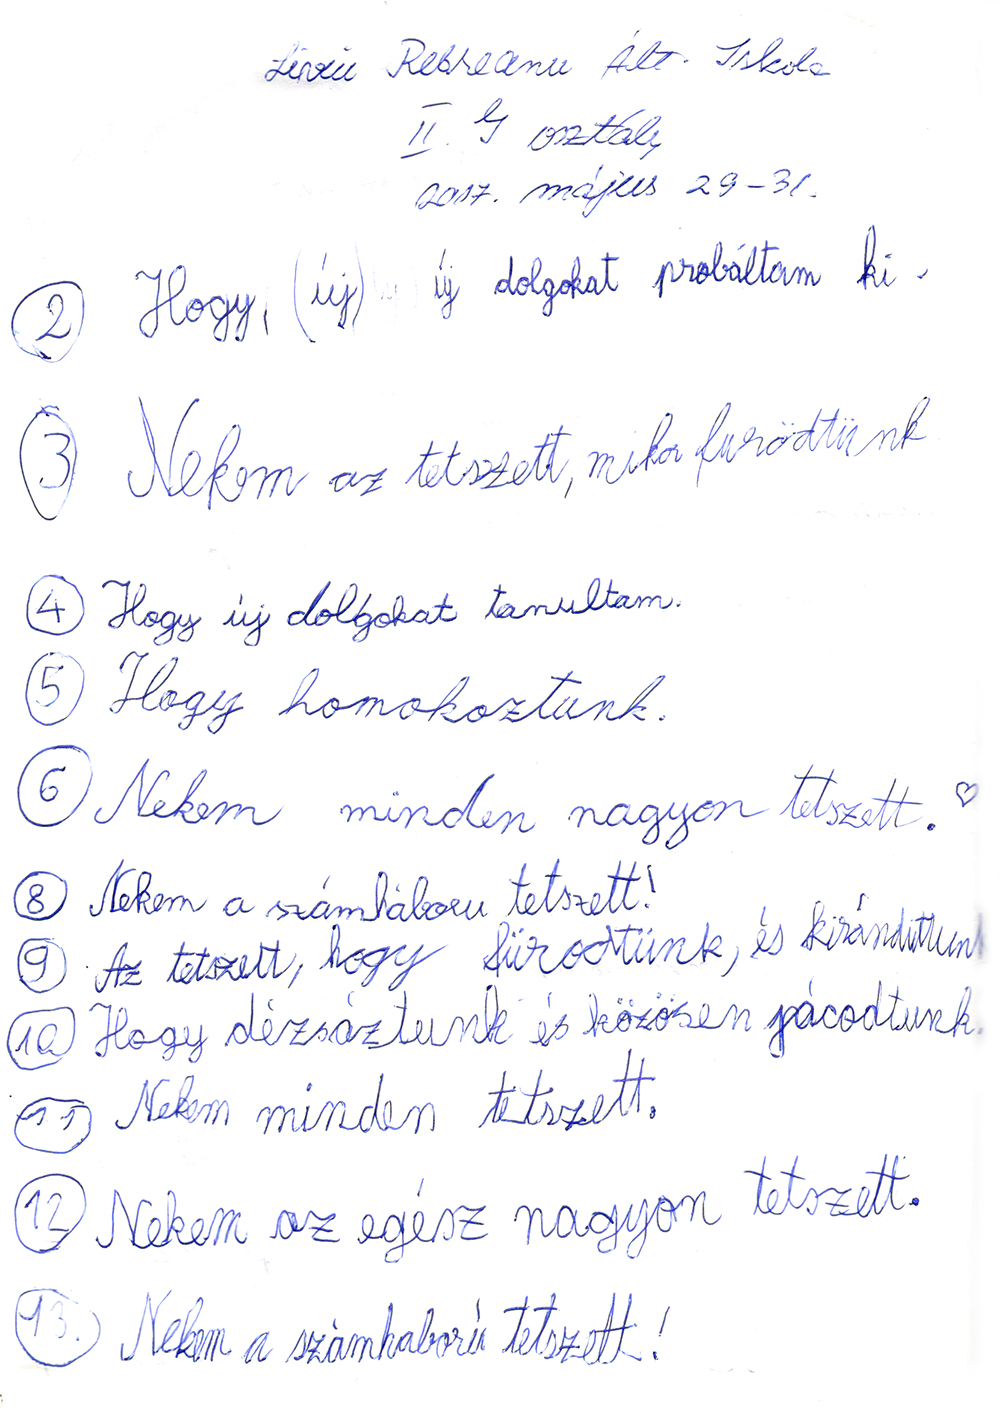 Liviu Rebreanu Ált. Iskola
II. G osztály
2017. május 29-31.
2 Hogy, (új) új dolgokat probáltam ki.
3 Nekem az tetszett, mikor furödtünk
4 Hogy új dolgokat tanultam.
5 Hogy homokoztunk.
6 Nekem minden nagyon tetszett. ♡
8 Nekem a számháboru tetszett!
9 Az tetszett, hogy fürodtünk, és kirándultunk
10 Hogy dézsáztunk és közösen pácodtunk.
11 Nekem minden tetszett.
12 Nekem az egész nagyon tetszett.
13. Nekem a számhaború tetszett!